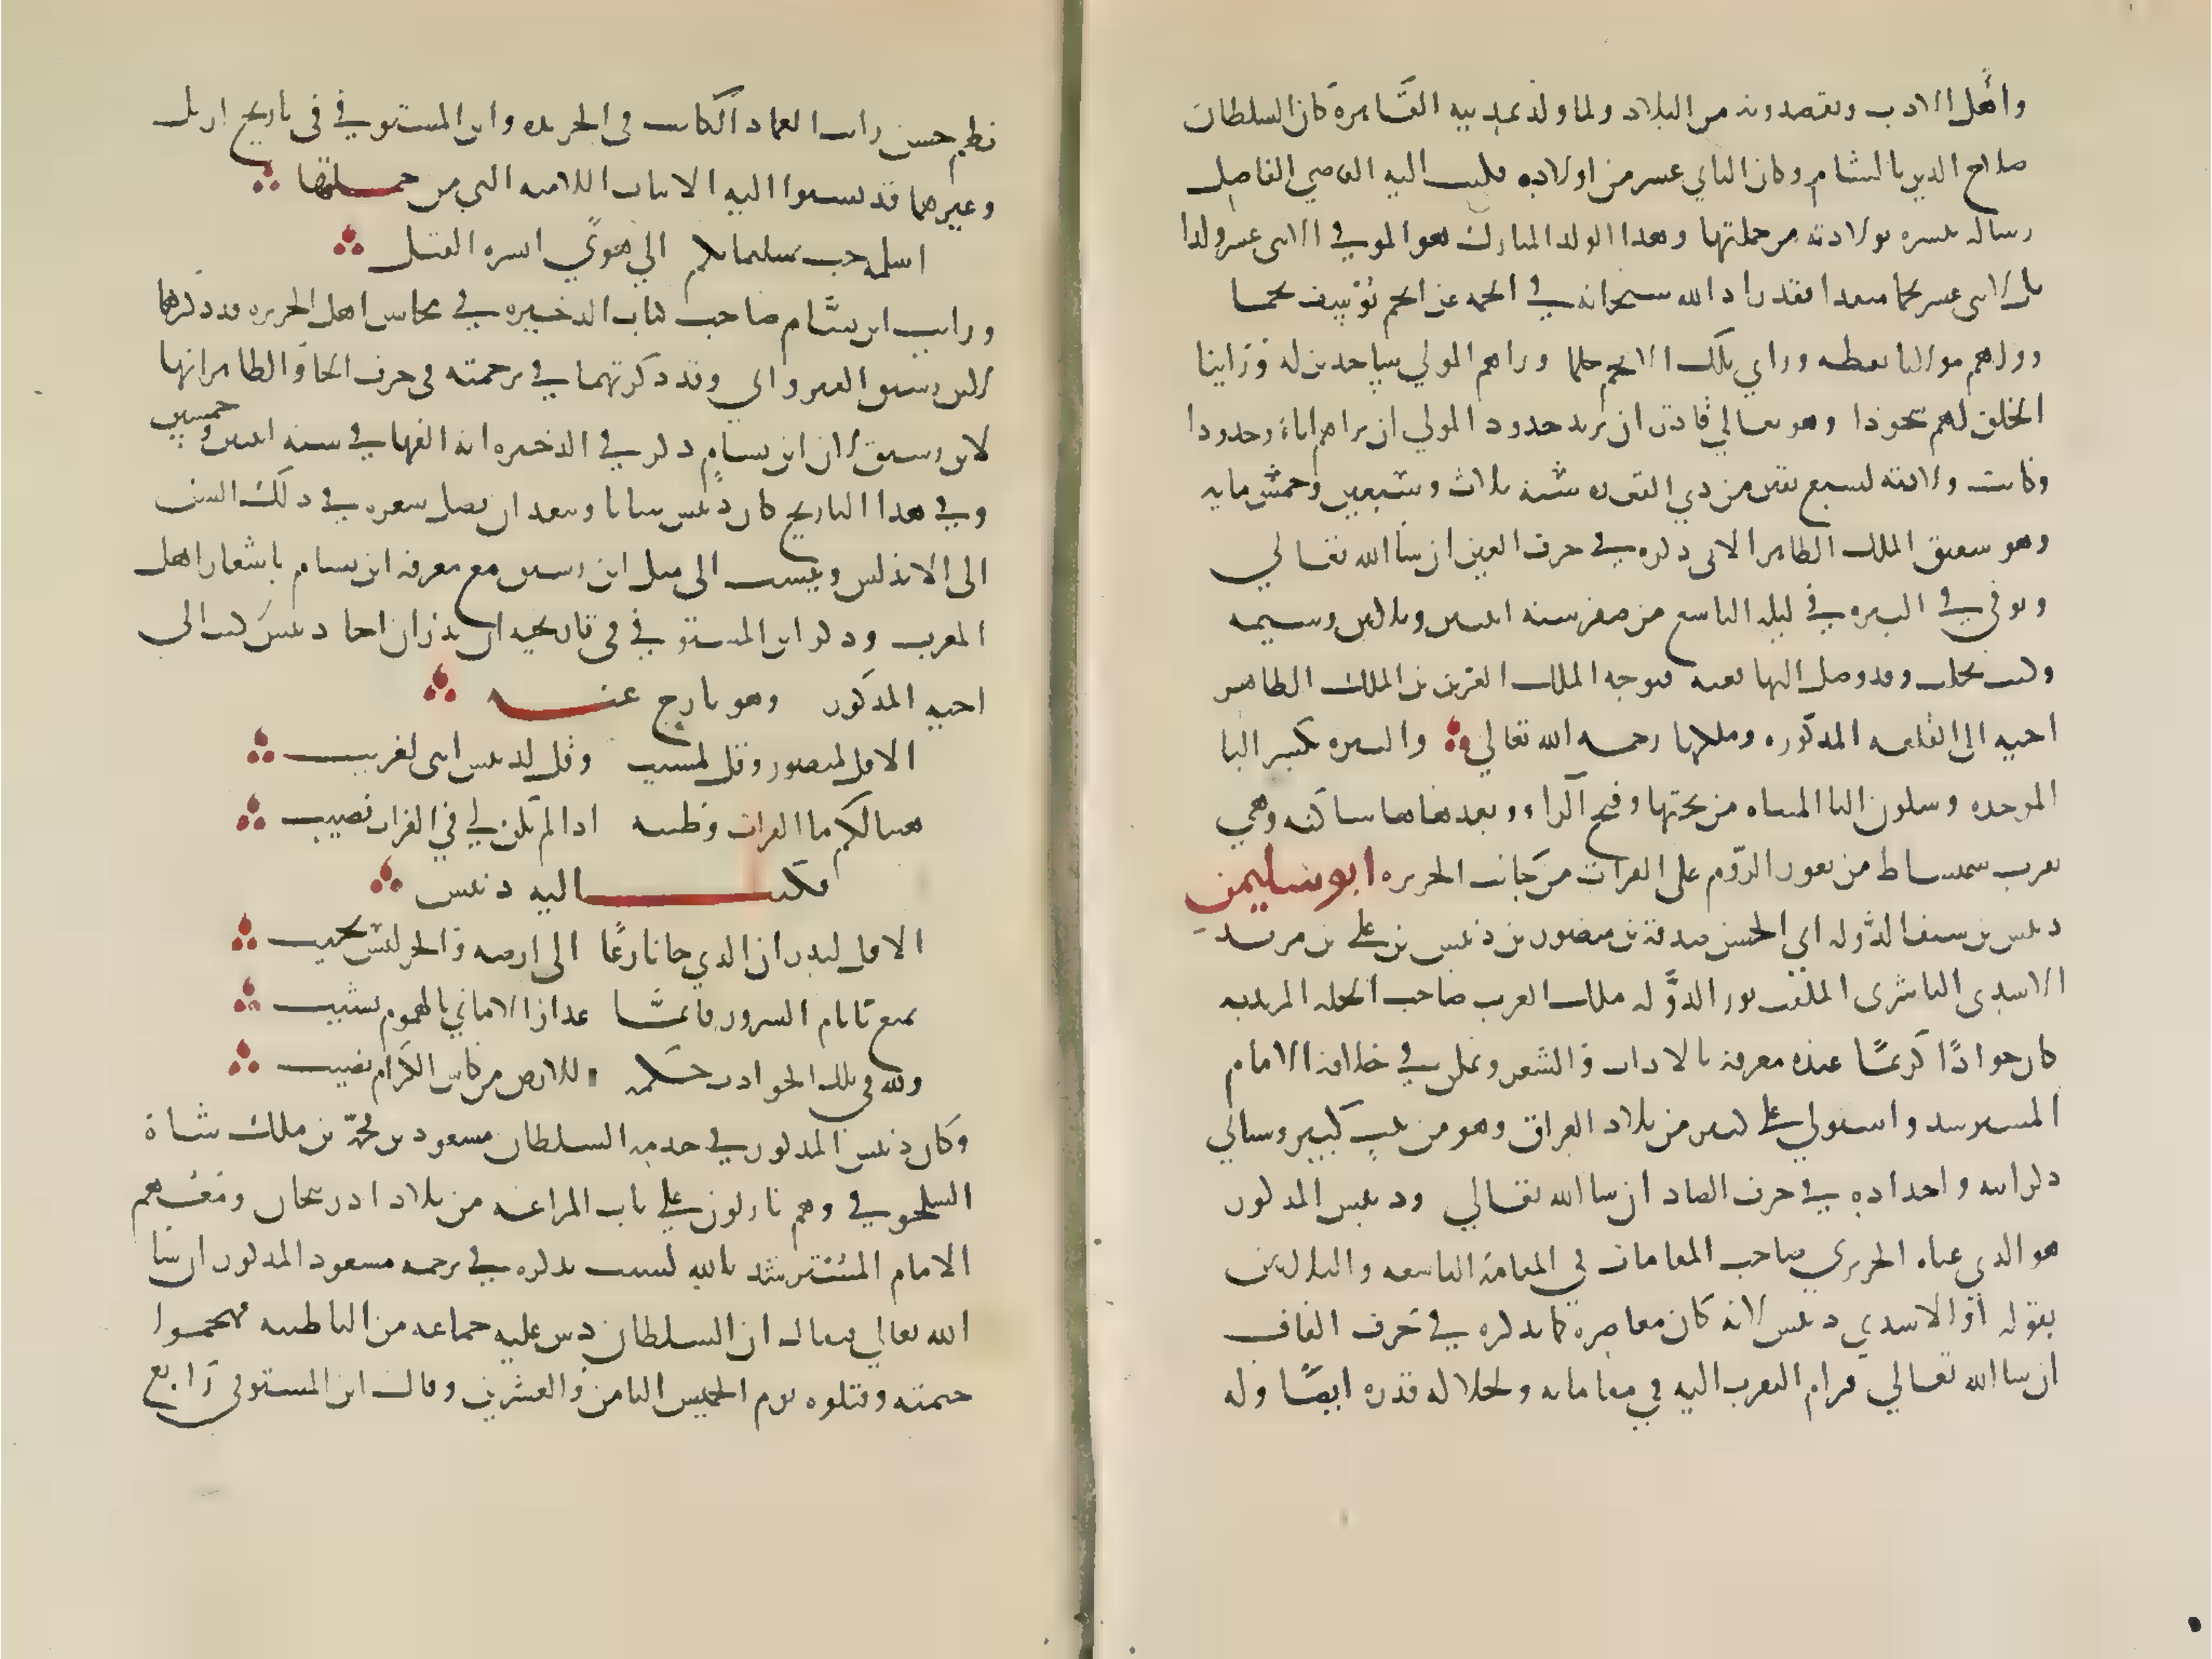 واهل الادب ويقصدونه من البلاد ولما ولد بمدينة القاهرة كان السلطان
صلاح الدين بالشام وكان الثاني عشر من اولاده فكتب اليه القاضي الفاضل
رساله يبشره بولادته من جملتها وهذا الولد المبارك هو الموفي لاثنى عشر ولدا
بل لاثنى عشر نجما متقدا فقد زاد الله سبحانه في انجمه عن انجم يوسف نجما
ورآهم مولانا يقظه وراي تلك الانجم حلما ورآهم المولي ساجدين له وراينا
الخلق لهم سجودا وهو تعالي قادر ان يزيد جدود المولي ان يراهم اباء وجدودا
وكانت ولادته لسبع بقين من ذي القعده سنة ثلاث وسبعين وخمس مايه
وهو شقيق الملك الظاهر الاتى ذكره في حرف الغين ان شا الله تعالي
وتوفي في البيره في ليلة التاسع من صفر سنه اثنتين وثلاثين وستمية
وكنت بحلب وقد وصل اليها نعيه فتوجه الملك العزيز بن الملك الظاهر
اخيه الى القلعه المذكوره وملكها رحمه الله تعالي والبيره بكسر البا
الموحده وسكون اليا المثناه من تحتها وفتح الراء وبعدها ها ساكنه وهي
بقرب سميساط من ثغور الروم على الفرات من جانب الجزيره ابو سليمن
دبيس بن سيف الدوله ابي الحسن صدقة بن منصور بن دبيس بن علي بن مزيد
الاسدى الناشرى الملقب نور الدوله ملك العرب صاحب الحله المزيديه
كان جوادا كريما عنده معرفه بالاداب والشعر وتمكن في خلافة الامام
المسترشد واستولي علي كثير من بلاد العراق وهو من بيت كبير وسياتي
ذكر ابيه واجداده في حرف الصاد ان شا الله تعالي ودبيس المذكور
هو الذي عناه الحريري صاحب المقامات في المقامة التاسعه والثلاثين
بقوله او الاسدي دبيس لانه كان معاصره كما نذكره في حرف القاف
ان شا الله تعالي فرام التقرب اليه في مقاماته ولجلاله قدره ايضا وله
نظم حسن رايت العماد الكاتب في الخريده وابن المستوفي في تاريخ اربل
وغيرهما قد نسبوا اليه الابيات اللاميه التي من جملتها
اسلمه حب سليمانكم الي هوي ايسره القتل
ورايت ابن بسام صاحب كتاب الذخيره في محاسن اهل الجزيره قد ذكرها
لابن رشيق القيرواني وقد ذكرتهما في ترجمته فى حرف الحا والظاهر انها
لابن رشيق لان ابن بسام ذكر في الذخيره انه الفها في سنه اثنتين وخمسين
وفي هذا التاريخ كان دبيس شابا وبعد ان يصل شعره في ذلك السن
الى الاندلس وينسب الى مثل ابن رشيق مع معرفه ابن بسام باشعار اهل
المغرب وذكر ابن المستوفي في تاريخه ان بدران اخا دبيس كتب الى
اخيه المذكور وهو نازح عنه
الا قل لمنصور وقل لمسيب وقل لدبيس اننى لغريب
هنيا لكم ما الفرات وطيبه اذا لم يكن لي في الفرات نصيب
فكتب اليه دبيس
الا قل لبدران الذي حن نازعا الى ارضه والحر ليس يخيب
تمتع بايام السرور فانما عذار الاماني بالهموم يشيب
ولله في تلك الحوادث حكمه وللارض من كاس الكرام نصيب
وكان دبيس المذكور في خدمة السلطان مسعود بن محمد بن ملك شاه
السلجوقي وهم نازلون علي باب المراغه من بلاد اذربيجان ومعهم
الامام المسترشد بالله لسبب نذكره في ترجمه مسعود المذكور ان شا
الله تعالي فيقال ان السلطان دس عليه جماعه من الباطنيه فهجموا
خيمته وقتلوه يوم الخميس الثامن والعشرين وقال ابن المستوفى رابع